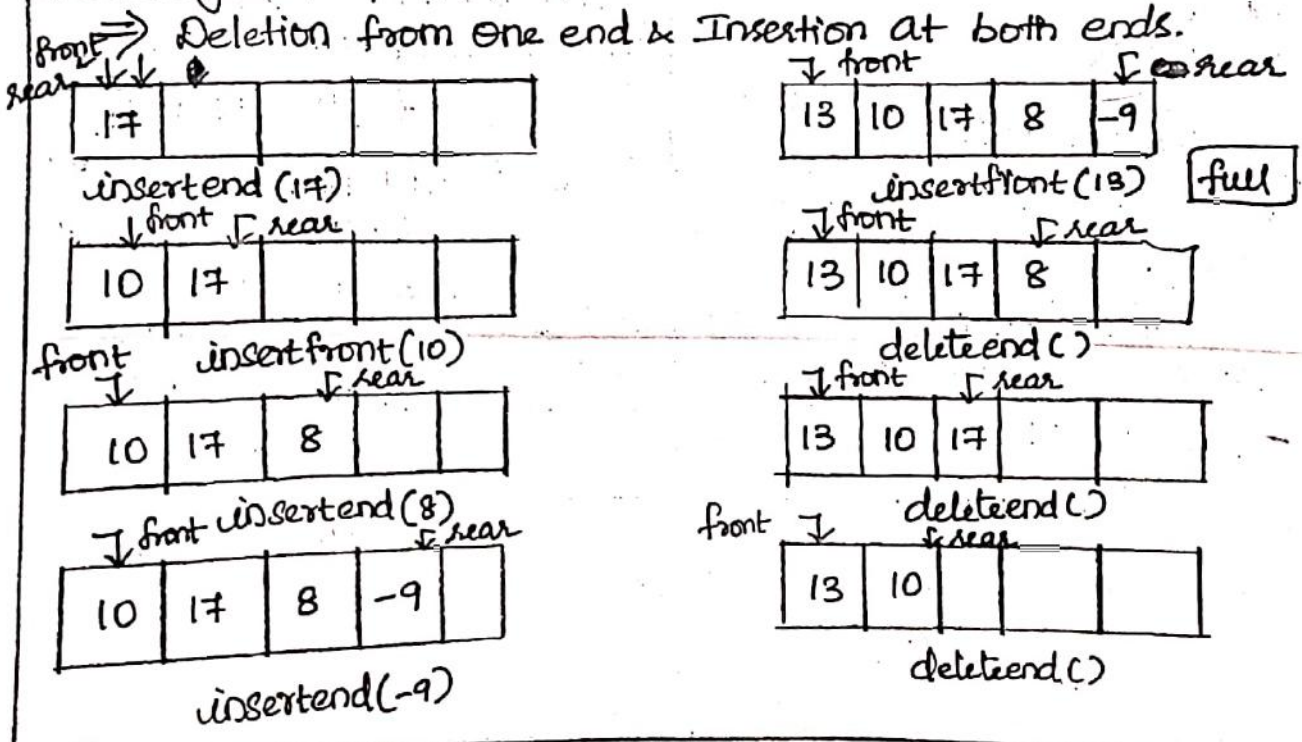 ⇒ Deletion from one end & Insertion at both ends.
front
rear
17
insertend (17)
front rear
10 17
insertfront (10)
front rear
10 17 8
insertend (8)
front rear
10 17 8 -9
insertend (-9)
front rear
13 10 17 8 -9
insertfront (13) full
front rear
13 10 17 8
deleteend ()
front rear
13 10 17
deleteend ()
front rear
13 10
deleteend ()